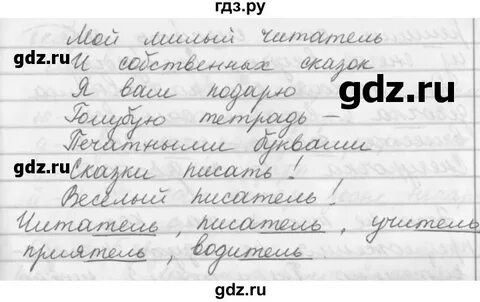 гдз.ру
Мой милый читатель
gdz.ru
И собственных сказок
gdz.ru
Я вам подарю
gdz.ru
Голубую тетрадь –
Печатными буквами
gdz.ru
Сказки писать!
gdz.ru
Веселый писатель!
Читатель, писатель, учитель
приятель, водитель
gdz.ru
gdz.ru